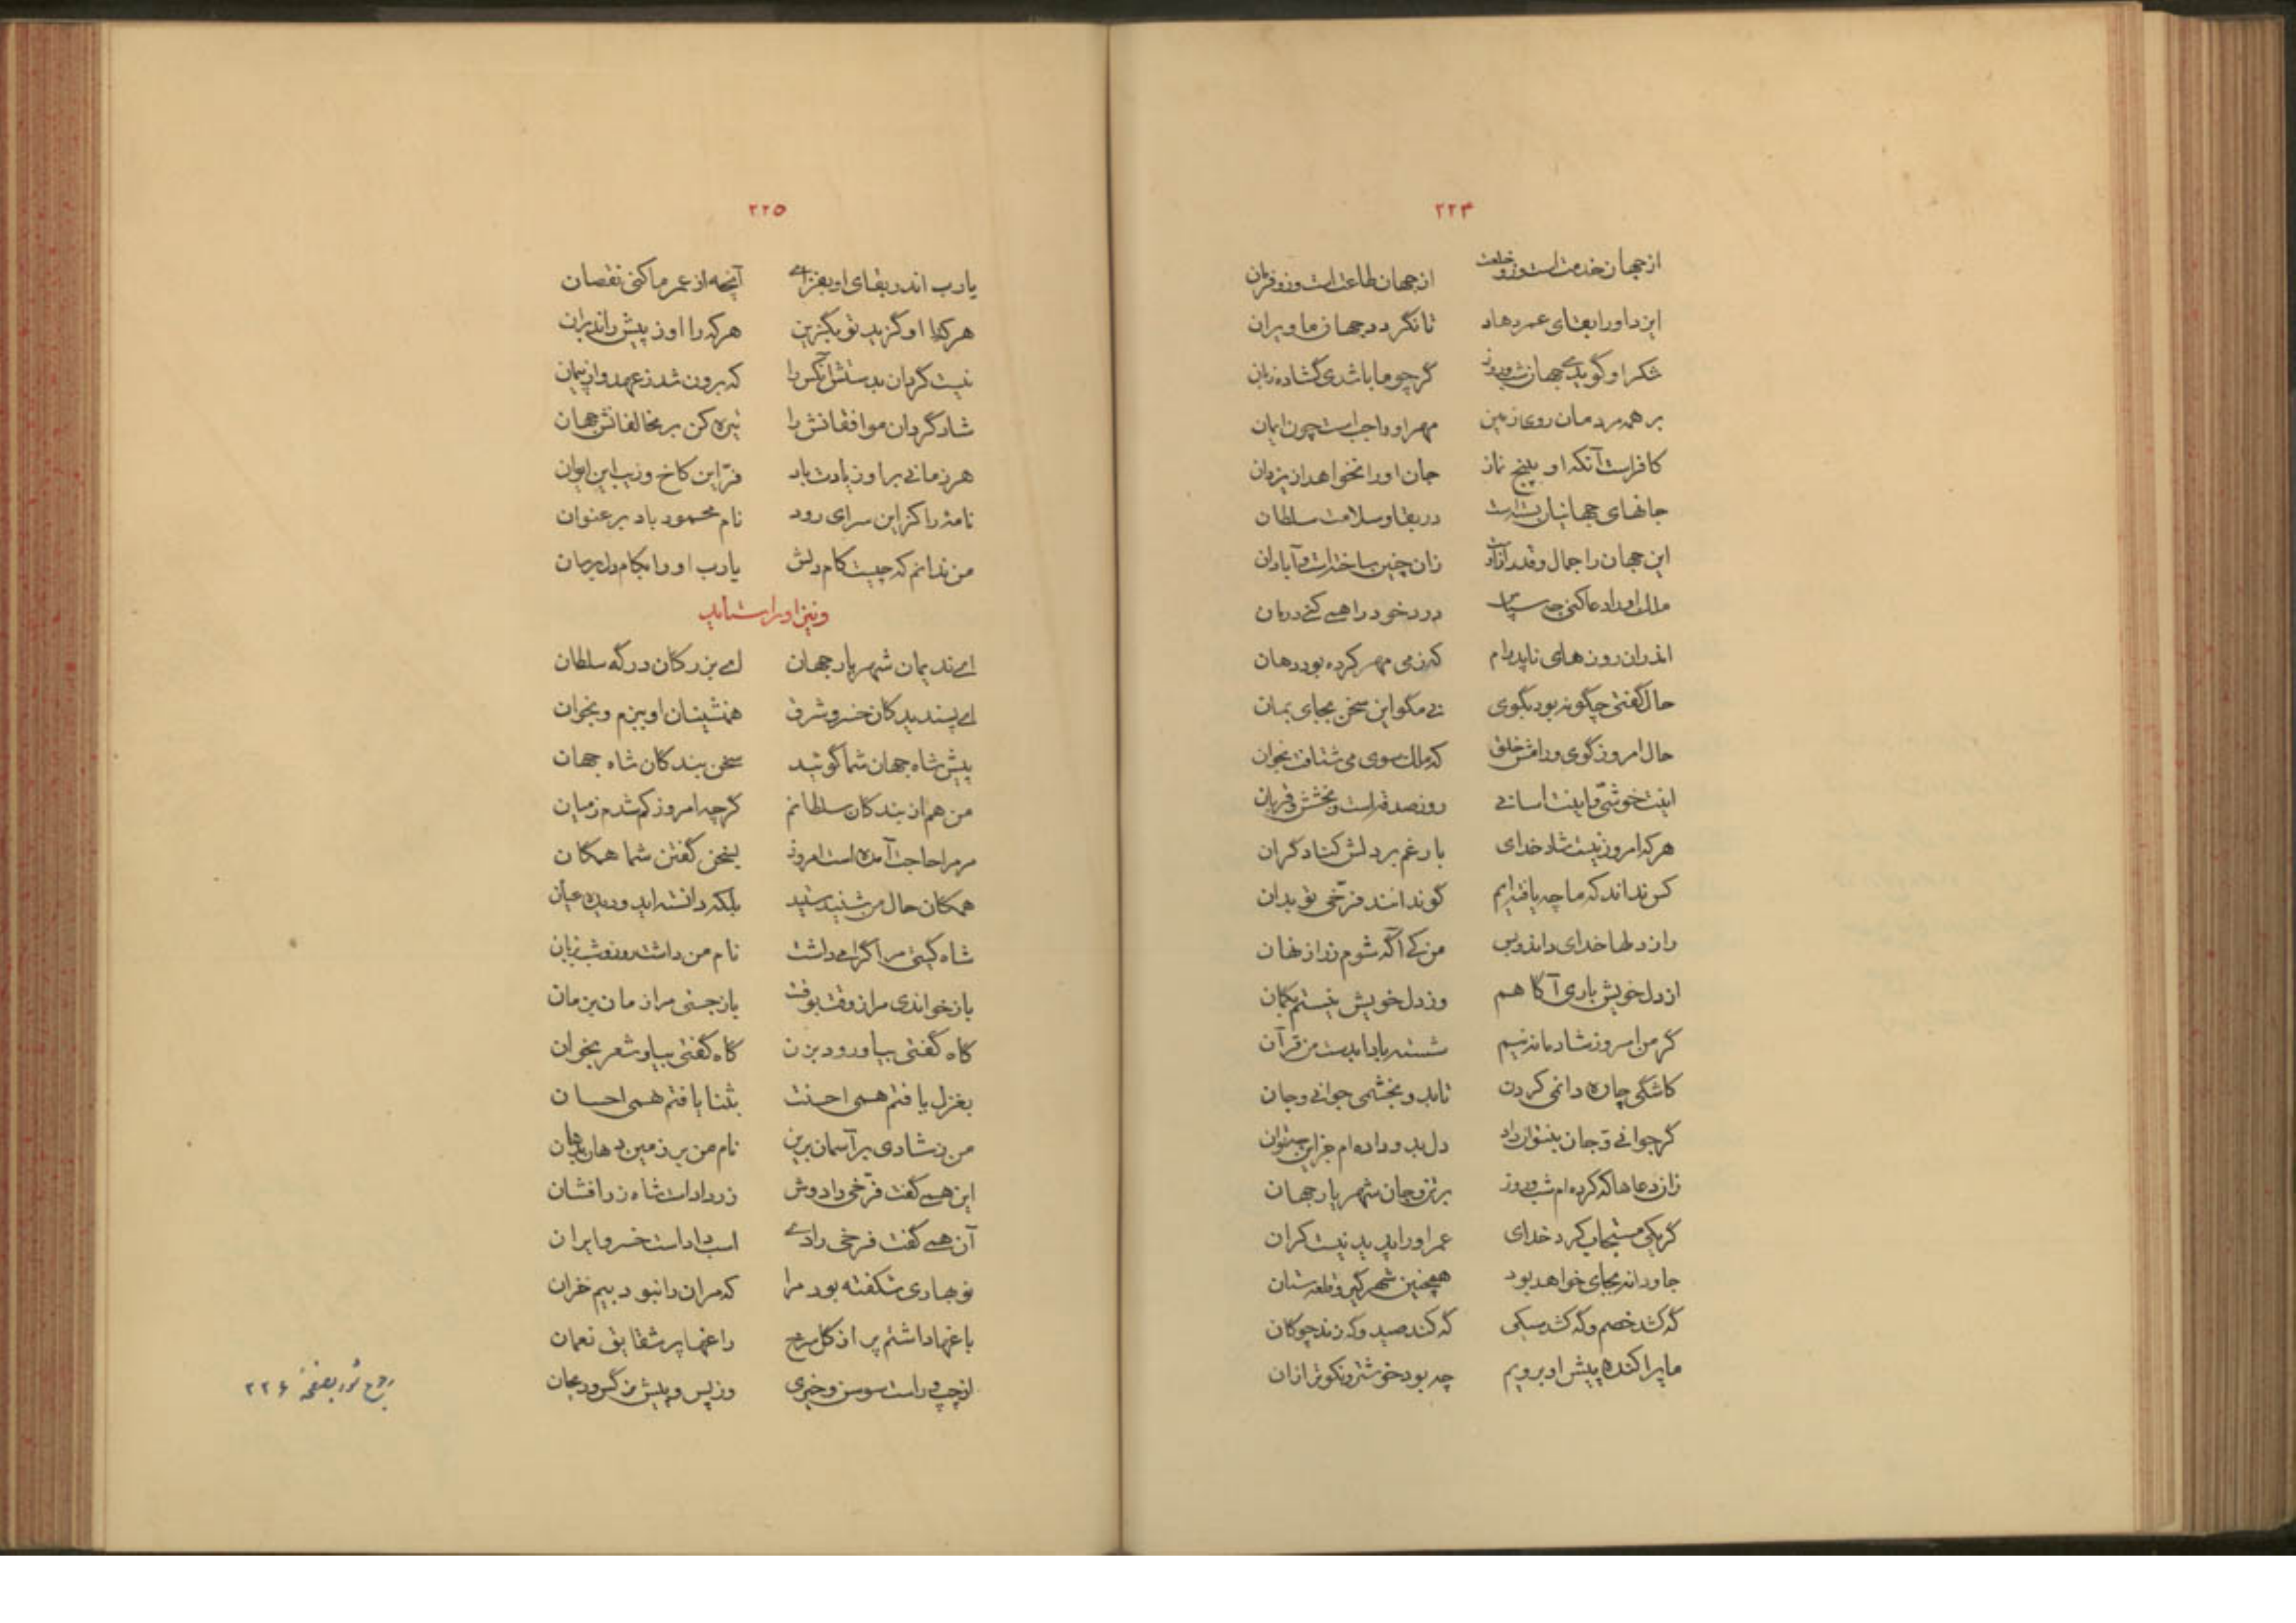 ۲۲۴
از جهان خدمتست وزو خلعت    از جهان طاعتست وزو فرمان
ایزد او را بقای عمر دهاد    تا نگردد جهان ما ویران
شکر او گوید جهان شب و روز    گر چو ما باشدی گشاده زبان
بر همه مردمان روی زمین    مهر او واجب است چون ایمان
کافرست آنکه او به پنج نماز    جان او را نخواهد از یزدان
جانهای جهانیان بسته است    در بقا و سلامت سلطان
این جهان را جمال و قدر ازوست    زان چنین ساخته است و آبادان
ملک او را دعا کنی
درد خود را همی کنی درمان
اندران روزهای نابدرام    که ز می مهر کرده بود دهان
حال گفتی چگونه بود بگوی    نی مگو این سخن بجای بمان
حال امروز گوی و رامش خلق    که ملک سوی می شتافت بخوان
اینت خوشی و اینت اسانی    روز صدقه است و بخشش و قربان
هر که امروز نیست شاد خدای    بار غم بر دلش کناد گران
کس نداند که ما چه یافته ایم    گو ندانند فرّخی تو بدان
راز دلها خدای داند و بس    من کی آگه شوم ز راز نهان
از دل خویش باری آگاهم    وز دل خویش نیستم بگمان
گر من امروز شادمانه نیم    شسته بادا بدست من قرآن
کاشکی چاره دانمی کردن    تا بدو بخشمی جوانی و جان
گر جوانی و جان بنتوان داد    دل بدو داده ام جز این نتوان
زان دعاها که کرده ام شب و روز    بر تن و جان شهریار جهان
گر یکی مستجاب کرد خدای    عمر او را پدید نیست کران
جاودانه بجای خواهد بود    همچنین شهر گیر و قلعه ستان
گه کشد خصم و گه کشد سیکی    گه کند صید و گه زند چوگان
ما پراکنده پیش او برویم    چه بود خوشتر و نکوتر از ان
۲۲۵
یارب اندر بقای او بفزای    آنچه از عمر ما کنی نقصان
هر کرا او گزید تو بگزین    هر که را او ز پیش راند بران
نیست گردان بدستش آنکس را    که برون شد ز عهد و از پیمان
شاد گردان موافقانش را    تیره کن بر مخالفانش جهان
هر زمانی بر او زیادت باد    فرّ این کاخ و زیب این ایوان
نامهٔ را کز این سرای رود    نام محمود باد بر عنوان
من ندانم که چیست کام دلش    یارب او را بکام دل برسان
و نیز او را ستاید
ای ندیمان شهریار جهان    ای بزرگان درگه سلطان
ای پسندیدگان خسرو شرق    همنشینان او ببزم و بخوان
پیش شاه جهان شما گوئید    سخن بندگان شاه جهان
من هم از بندگان سلطانم    گرچه امروز کم شدم ز میان
مر مرا حاجت آمده است امروز    بسخن گفتن شما همگان
همگان حال من شنیدستید    بلکه دانسته اید و دیده عیان
شاه گیتی مرا گرامی داشت    نام من داشت روز و شب بزبان
باز خواندی مرا ز وقت بوقت    باز جستی مرا زمان بزمان
گاه گفتی بیا و رود بزن    گاه گفتی بیا و شعر بخوان
بغزل یافتم همی احسنت    بثنا یافتم همی احسان
من ز شادی بر آسمان برین    نام من بر زمین دهان بدهان
این همی گفت فرّخی را دوش    زر دادست شاه زر افشان
آن همی گفت فرخی را دی    اسب دادست خسرو ایران
نوبهاری شکفته بود مرا    که مران را نبود بیم خزان
باغها داشتم پر از گل سرخ    داغها پر شقایق نعمان
از چپ و راست سوسن و خیری    وز پس و پیش نرگس و ریحان
رجوع شود بصفحهٔ ۲۲۶